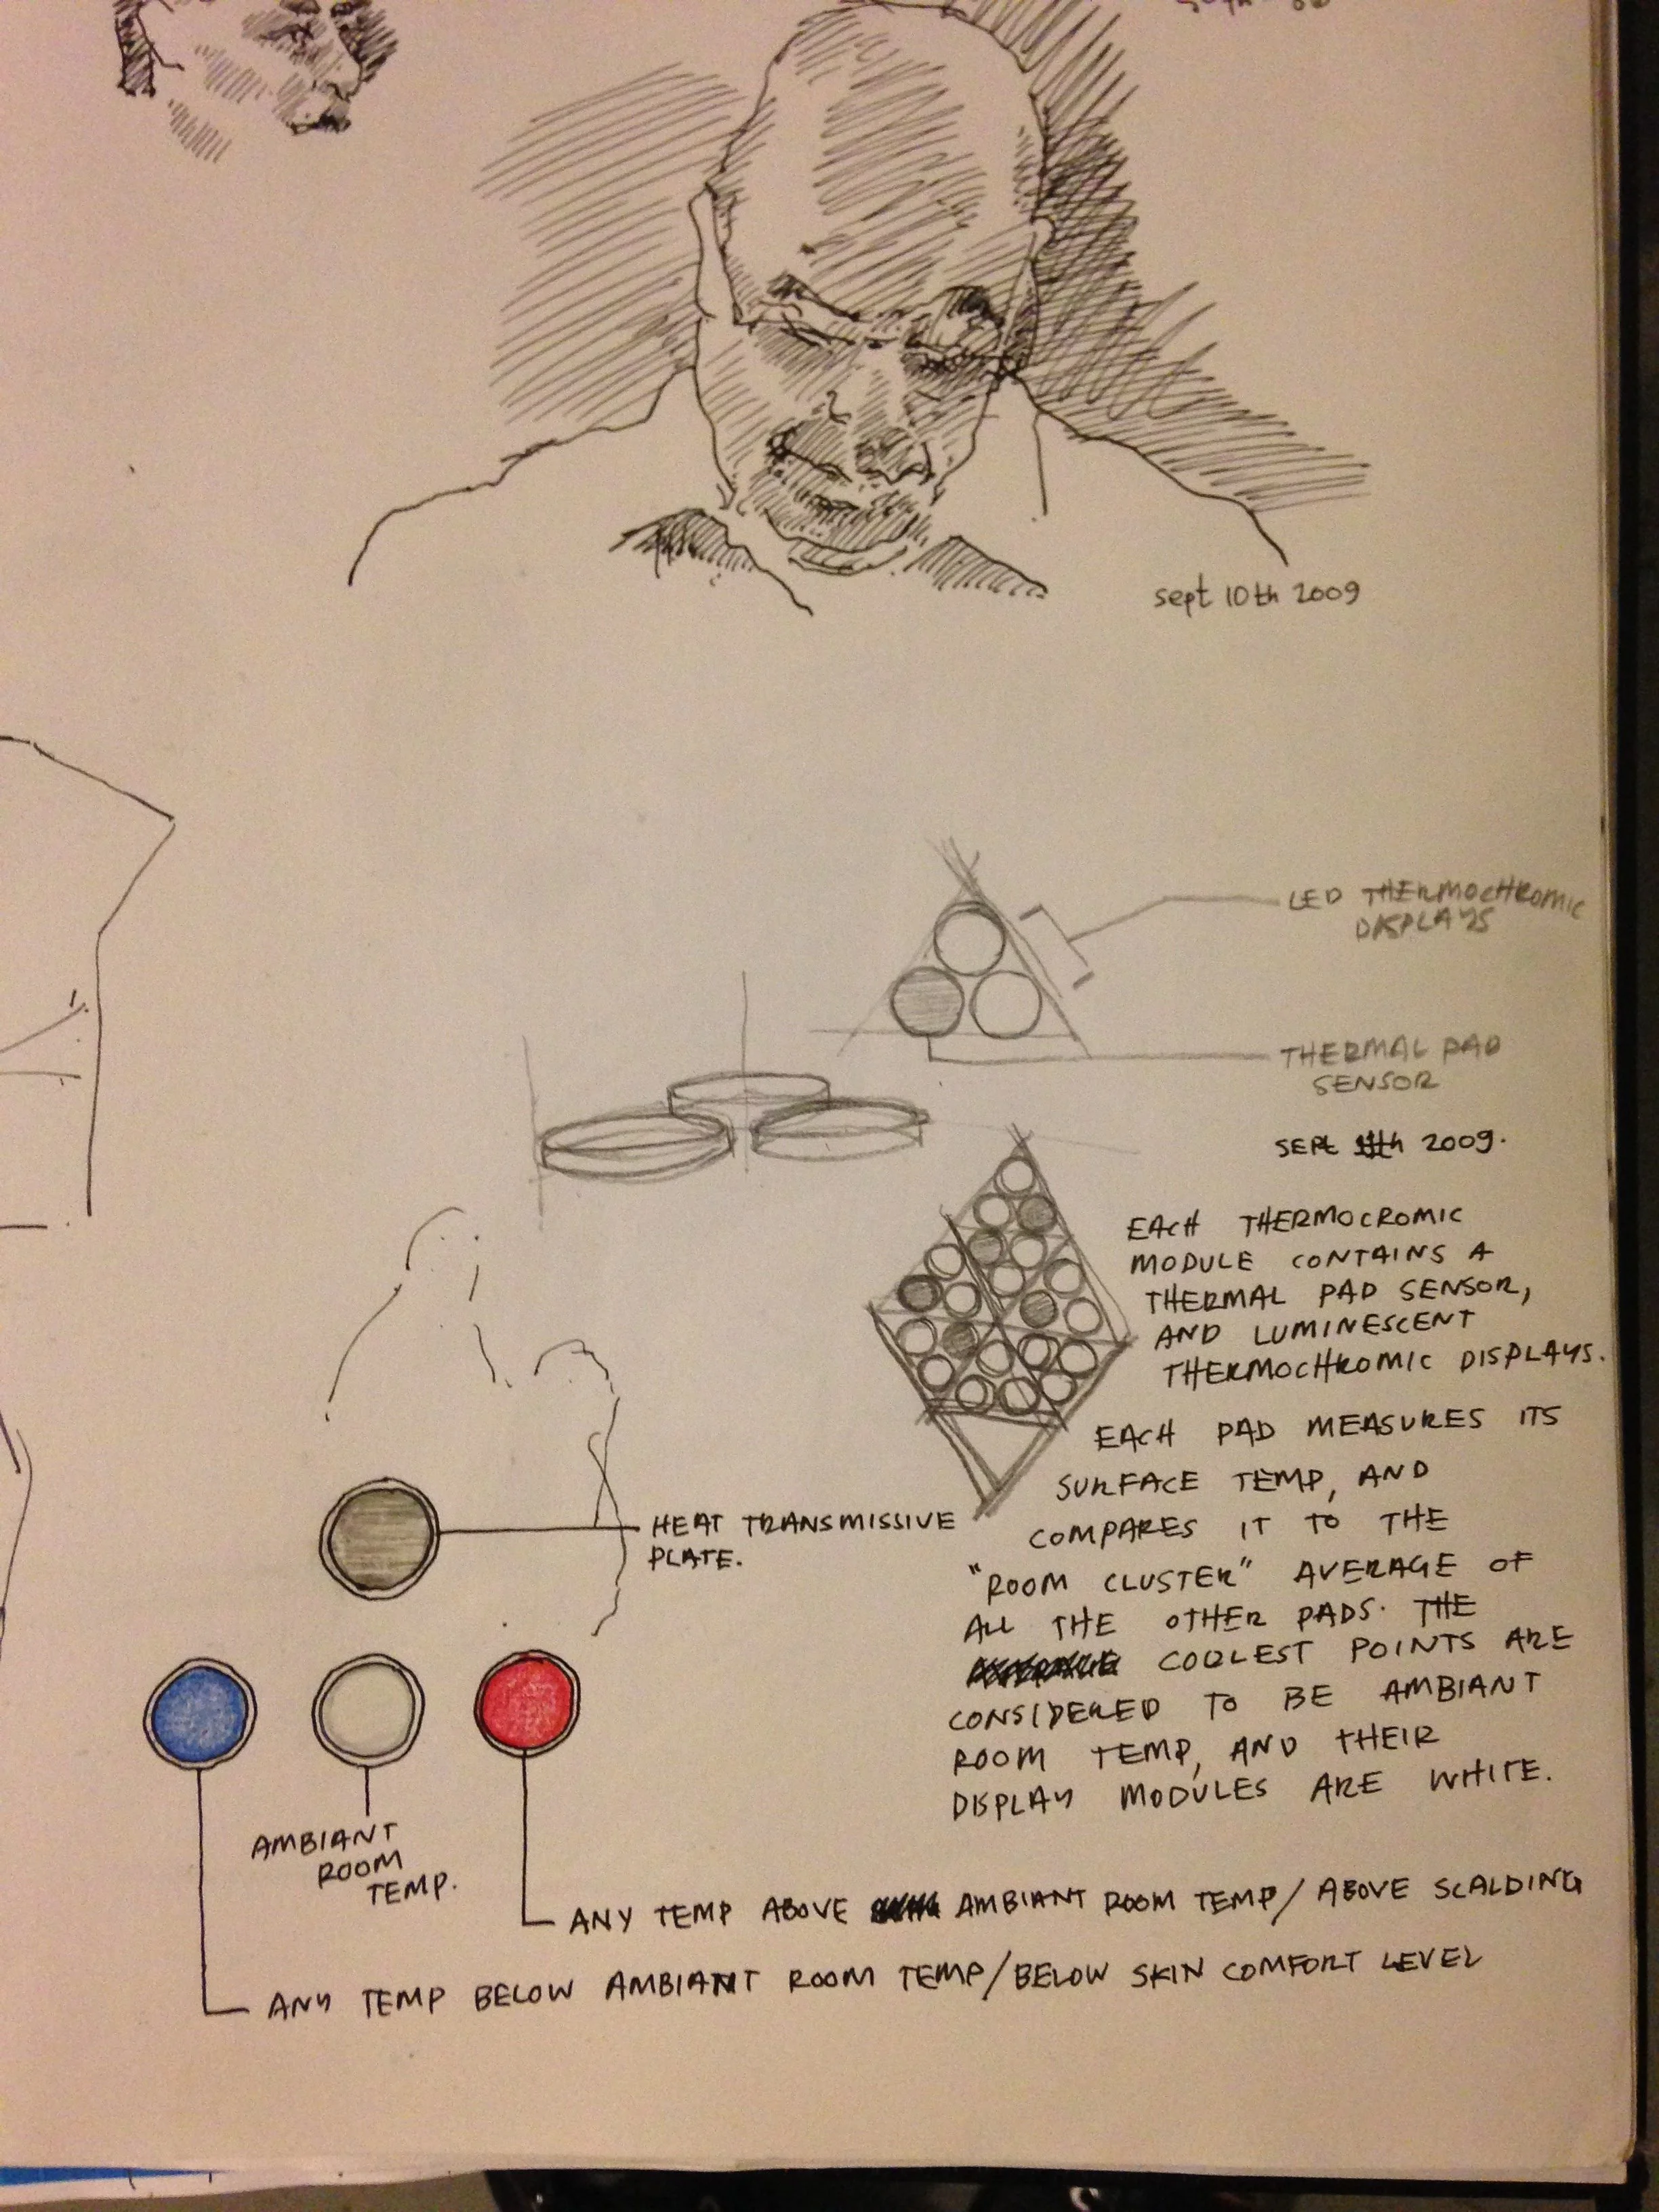 sept 10th 2009
LED THERMOCHROMIC
DISPLAYS
THERMAL PAD
SENSOR
SEPT 11th 2009.
EACH THERMOCROMIC
MODULE CONTAINS A
THERMAL PAD SENSOR,
AND LUMINESCENT
THERMOCHROMIC DISPLAYS.
EACH PAD MEASURES ITS
SURFACE TEMP, AND
COMPARES IT TO THE
"ROOM CLUSTER" AVERAGE OF
ALL THE OTHER PADS. THE
COOLEST POINTS ARE
CONSIDERED TO BE AMBIANT
ROOM TEMP, AND THEIR
DISPLAY MODULES ARE WHITE.
HEAT TRANSMISSIVE
PLATE.
AMBIANT
ROOM
TEMP.
ANY TEMP ABOVE AMBIANT ROOM TEMP/ABOVE SCALDING
ANY TEMP BELOW AMBIANT ROOM TEMP/BELOW SKIN COMFORT LEVEL